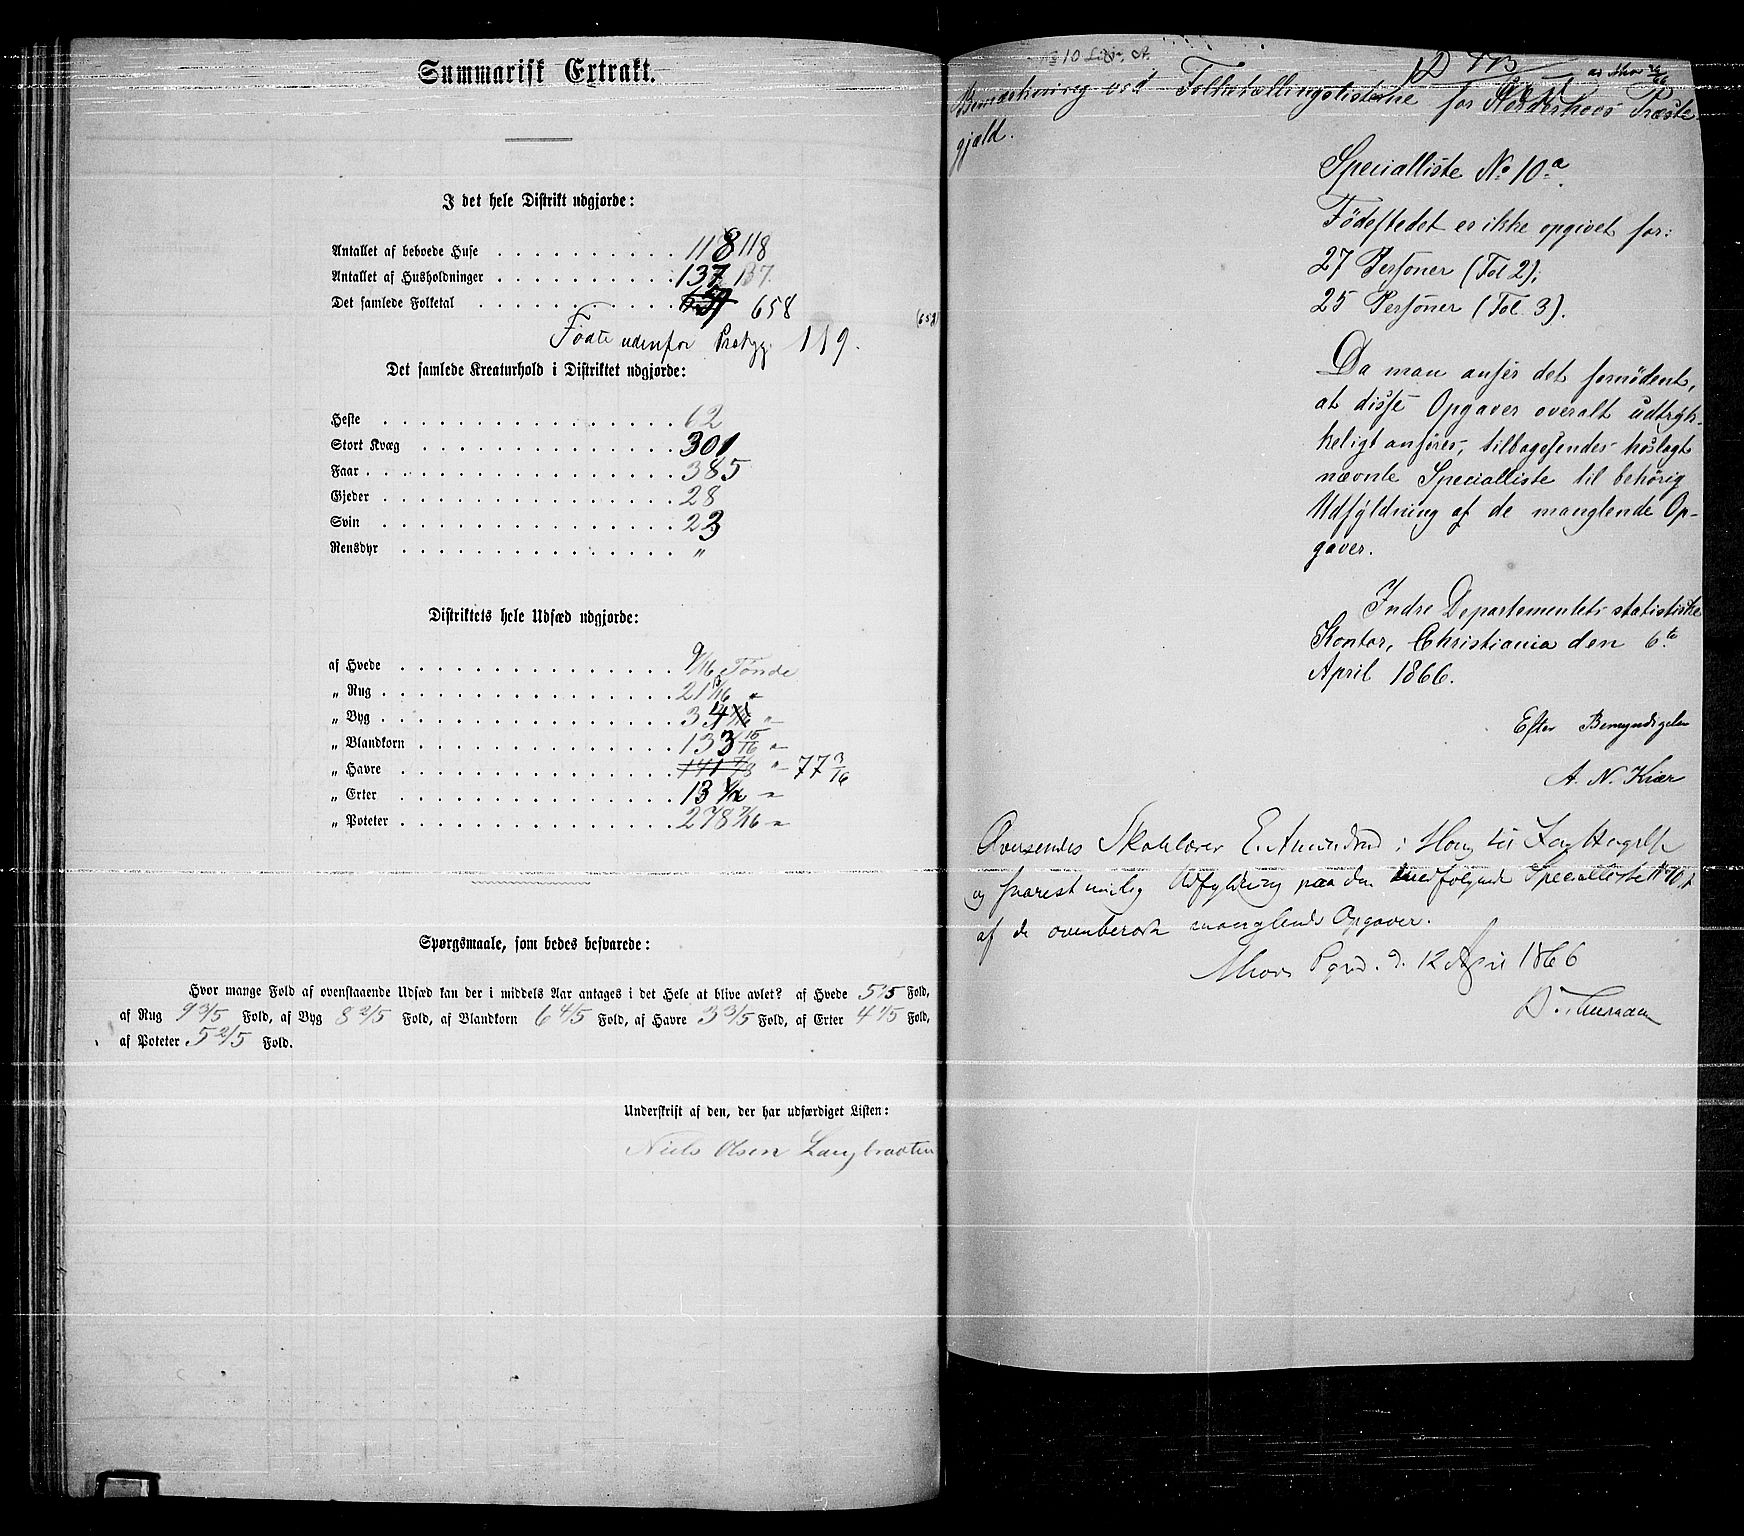 Summarisk Extrakt.
I det hele Distrikt udgjorde:
Antallet af beboede Huse . . . . . . . . . . 118 118
Antallet af Husholdninger . . . . . . . . . . 137 137.
Det samlede Folketal . . . . . . . . . . 659 658
(658)
Fødte udenfor Prstgj. 119.
Det samlede Kreaturhold i Distriktet udgjorde:
Heste . . . . . . . . . . 62
Stort Kvæg . . . . . . . . . . 301
Faar . . . . . . . . . . 385
Gjeder . . . . . . . . . . 28
Svin . . . . . . . . . . 23
Rensdyr . . . . . . . . . . "
Distriktets hele Udsæd udgjorde:
af Hvede . . . . . . . . . . 9/16 Tønde
„ Rug . . . . . . . . . . 21
„ Byg . . . . . . . . . . 34 "
„ Blandkorn . . . . . . . . . . 133 15/16 "
„ Havre . . . . . . . . . . 141 " 77 3/16
„ Erter . . . . . . . . . . 13 "
„ Poteter . . . . . . . . . . 278 7/16 "
Spørgsmaale, som bedes besvarede:
Hvor mange Fold af ovenstaaende Udsæd kan der i middels Aar antages i det Hele at blive avlet? af Hvede Fold,
af Rug 9 3/5 Fold, af Byg 8 2/5 Fold, af Blandkorn 6 4/5 Fold, af Havre 3 3/5 Fold, af Erter 4 Fold,
af Poteter 5 2/5 Fold.
Underskrift af den, der har udfærdiget Listen:
Niels Olsen Langbraaten
No 10
Bemærkning ved Folketællingslisterne for Norderhovs Præste-
gjæld.
Specialliste No 10a.
Fødestedet er ikke opgivet for:
27 Personer (Fol 2);
25 Personer (Fol. 3).
Da man anser det fornødent,
at disse Opgaver overalt udtryk-
keligt anføres, tilbagesendes hoslagt
nævnte Specialliste til behørig
Udfyldning af de manglende Op-
gaver.
Indre Departementets statistiske
Kontor, Christiania den 6te
April 1866.
Efter Bemyndigelse
A. N. Kiær
Oversendes Skolelærer E. Amundsrud i til
og snarest mulig Udfyldning paa den medfølgende Specialliste No 10,
af de ovenberørte manglende Opgaver.
12 April 1866